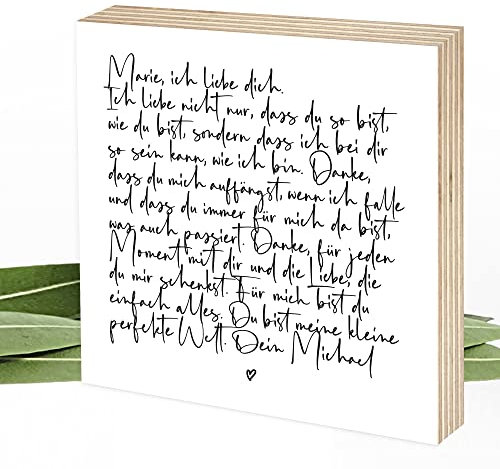 Marie, ich liebe dich.
Ich liebe nicht nur, dass du so bist,
wie du bist, sondern dass ich bei dir
so sein kann, wie ich bin. Danke,
dass du mich auffängst, wenn ich falle
und dass du immer für mich da bist,
was auch passiert. Danke, für jeden
Moment mit dir und die Liebe, die
du mir schenkst. Für mich bist du
einfach alles. Du bist meine kleine
perfekte Welt. Dein Michael